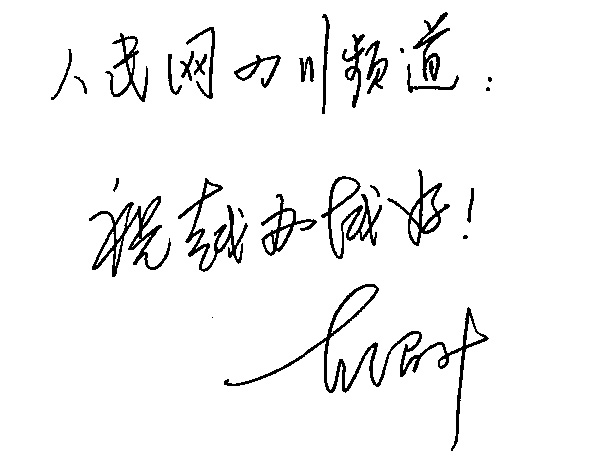 人民网四川频道：
祝越办越好！